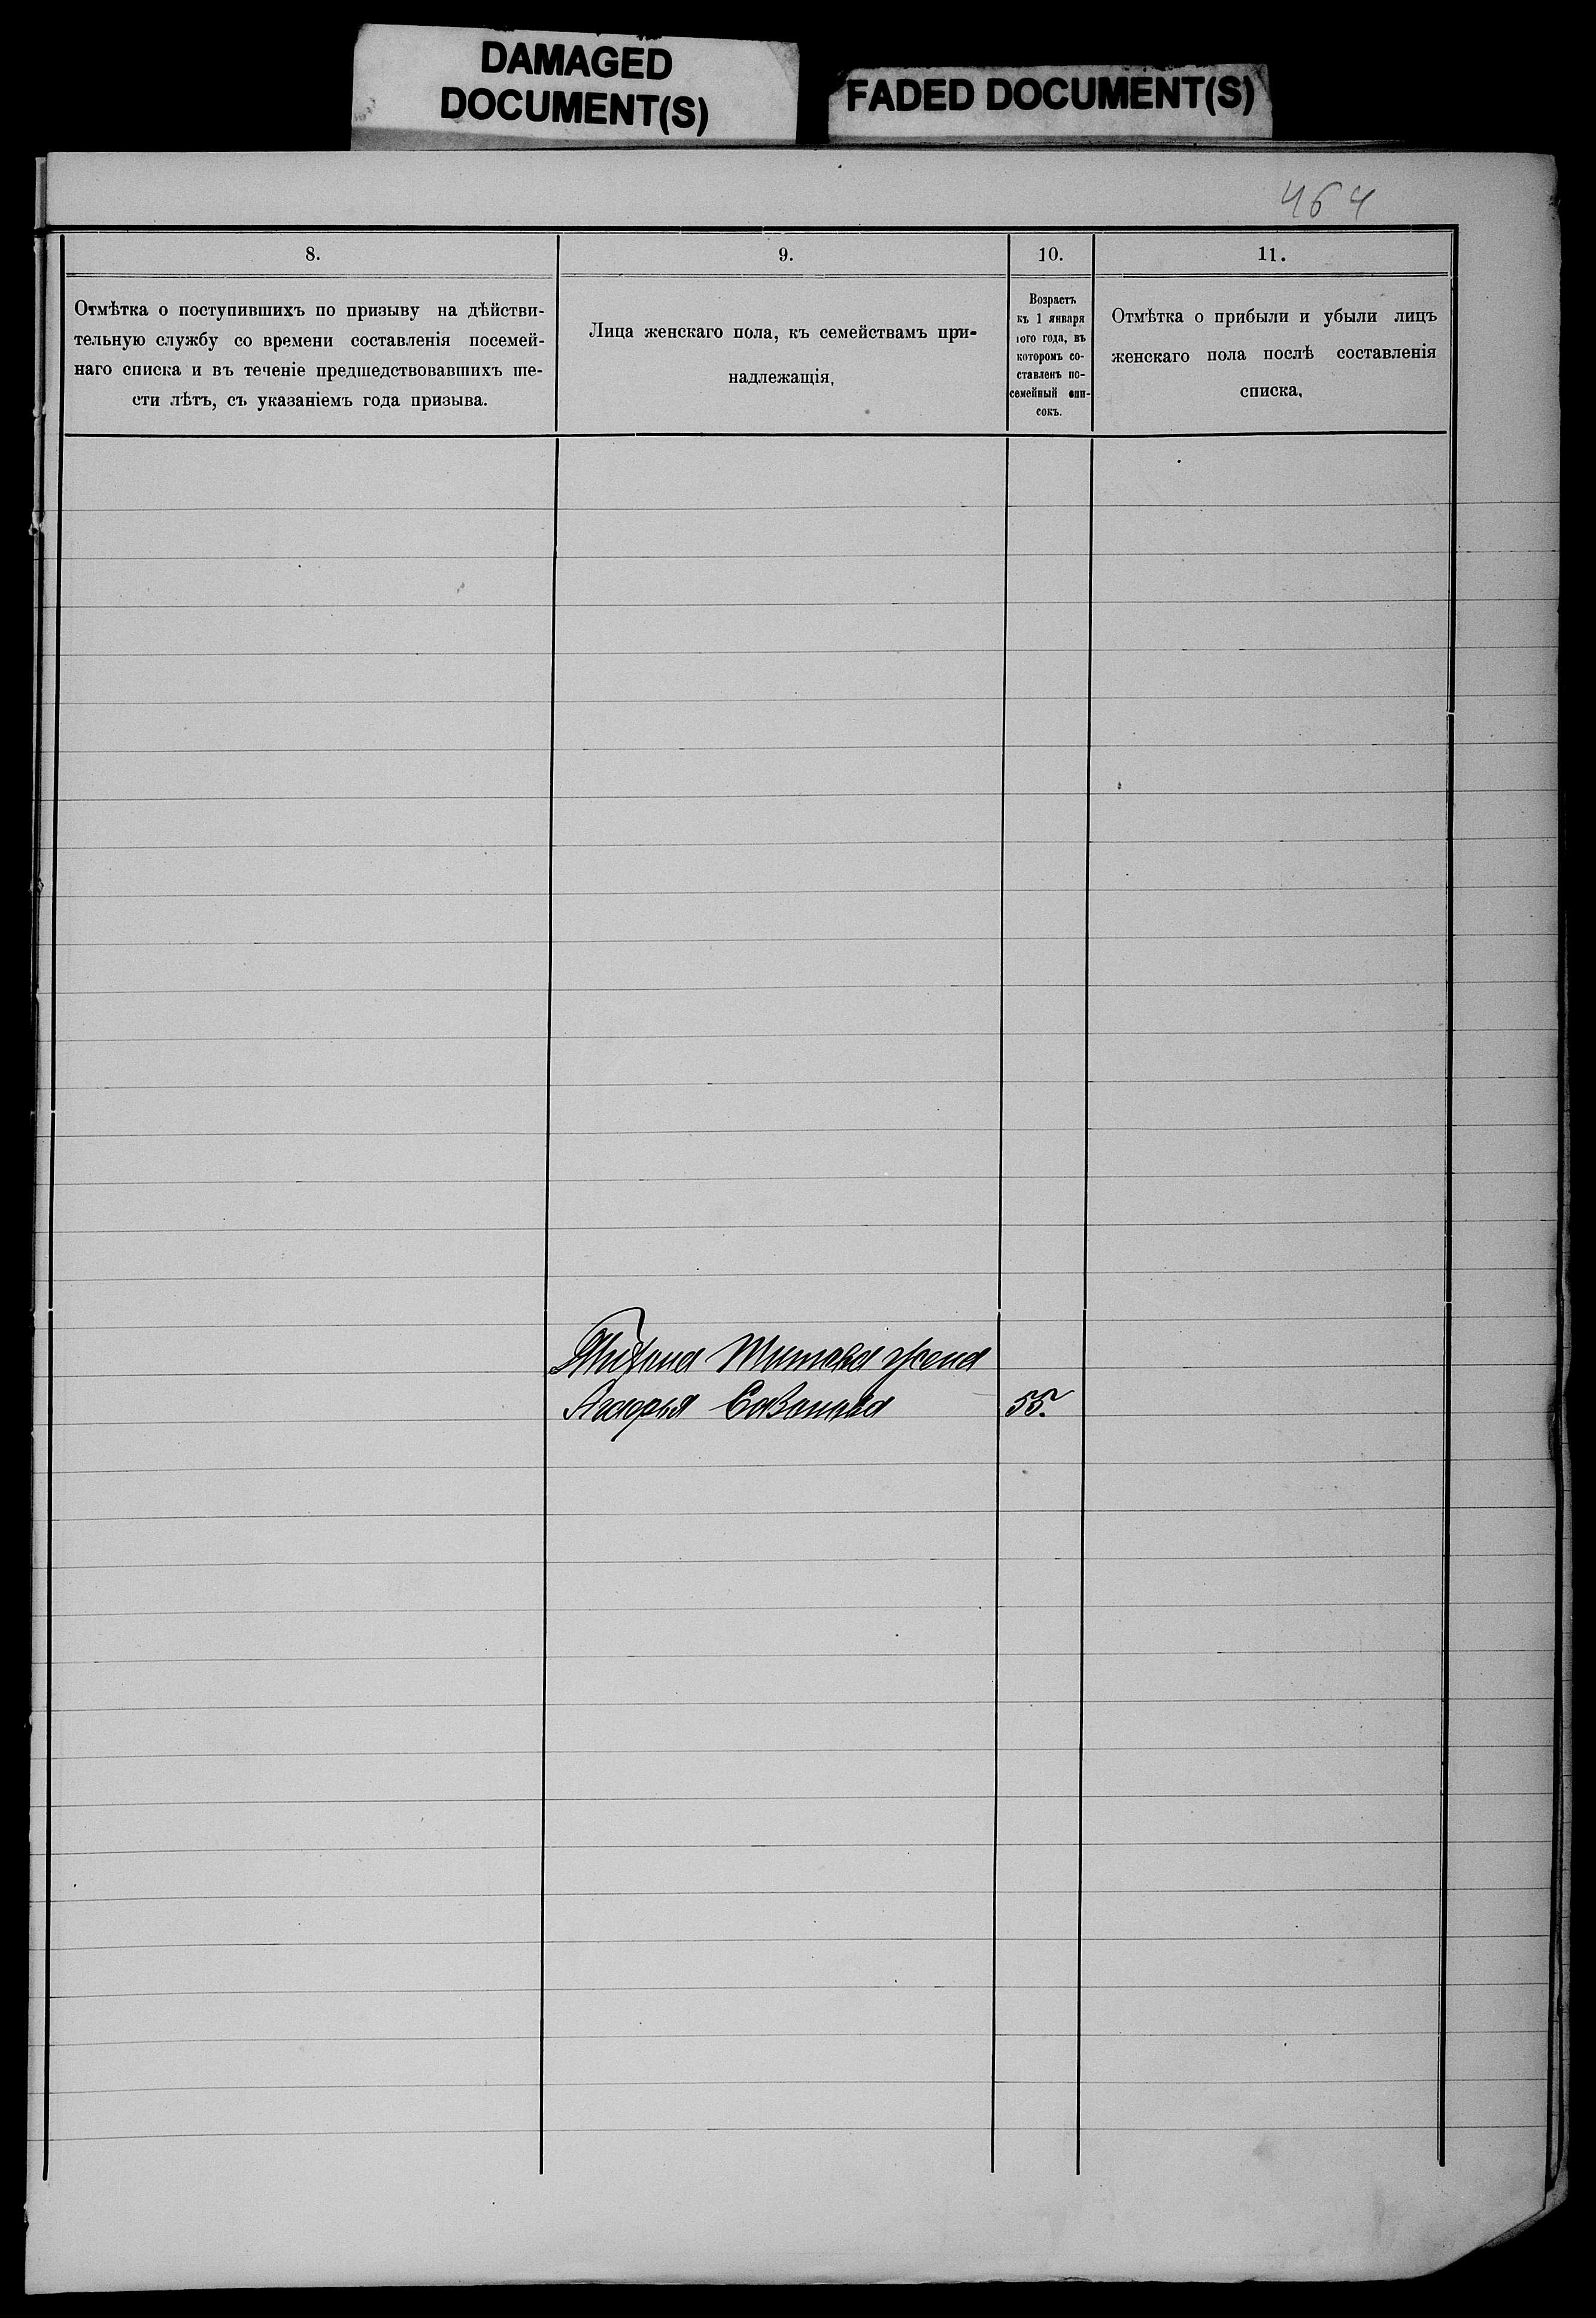 DAMAGED
DOCUMENT(S)
FADED DOCUMENT(S)
464
8.
Отмѣтка о поступившихъ по призыву на дѣйстви-
тельную службу со времени составленія посемей-
наго списка и въ теченіе предшедствовавшихъ ше-
сти лѣтъ, съ указаніемъ года призыва.
9.
Лица женскаго пола, къ семействамъ при-
надлежащія,
10.
Возрастъ
къ 1 января
того года, въ
которомъ со-
ставленъ по-
семейный спи-
сокъ.
11.
Отмѣтка о прибыли и убыли лицъ
женскаго пола послѣ составленія
списка,
Титова жена
55.